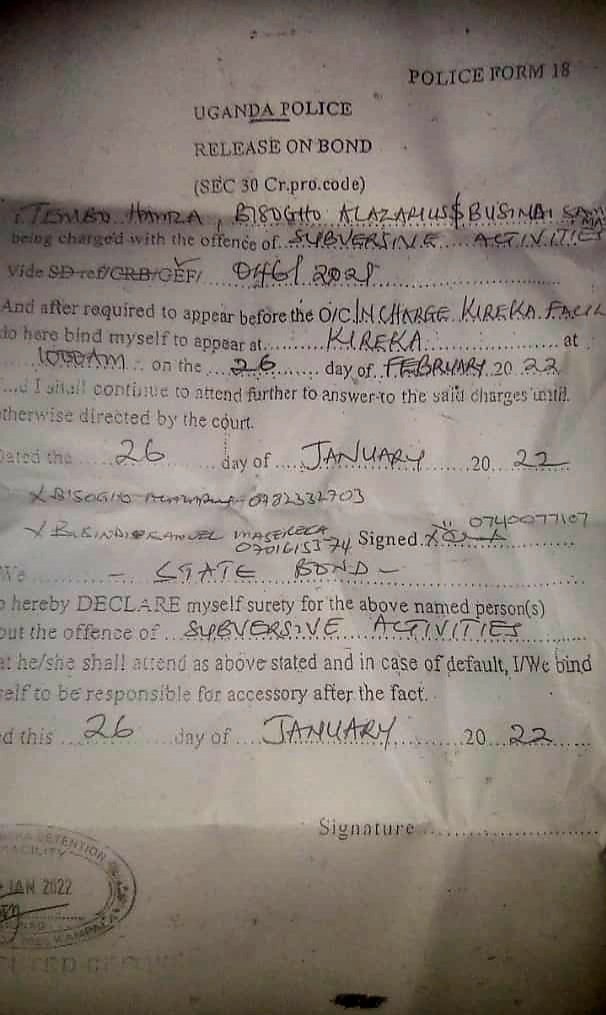 POLICE FORM 18
UGANDA POLICE
RELEASE ON BOND
(SEC 30 Cr.pro.code)
TEMBO HAMZA, BISOGHO ALAZARIUS $ BUSINDI
being charged with the offence of SUBVERSIVE ACTIVITIES
Vide SD ref/CRB/GEF/ 046/2021
And after required to appear before the O/C INCHARGE KIREKA FACIL
do here bind myself to appear at KIREKA at
1000AM on the 26 day of FEBRUARY 20 22
I shall continue to attend further to answer to the said charges until
therwise directed by the court.
Dated the 26 day of JANUARY 20 22
X BISOGHO 0782332703
0740077107
X BUSINDI SAMUEL MASEREKA
0701615374 Signed X
We - STATE BOND -
hereby DECLARE myself surety for the above named person(s)
out the offence of SUBVERSIVE ACTIVITIES
at he/she shall attend as above stated and in case of default, I/We bind
self to be responsible for accessory after the fact.
d this 26 day of JANUARY 20 22
Signature
DETENTION
FACILITY
JAN 2022
KAMPALA